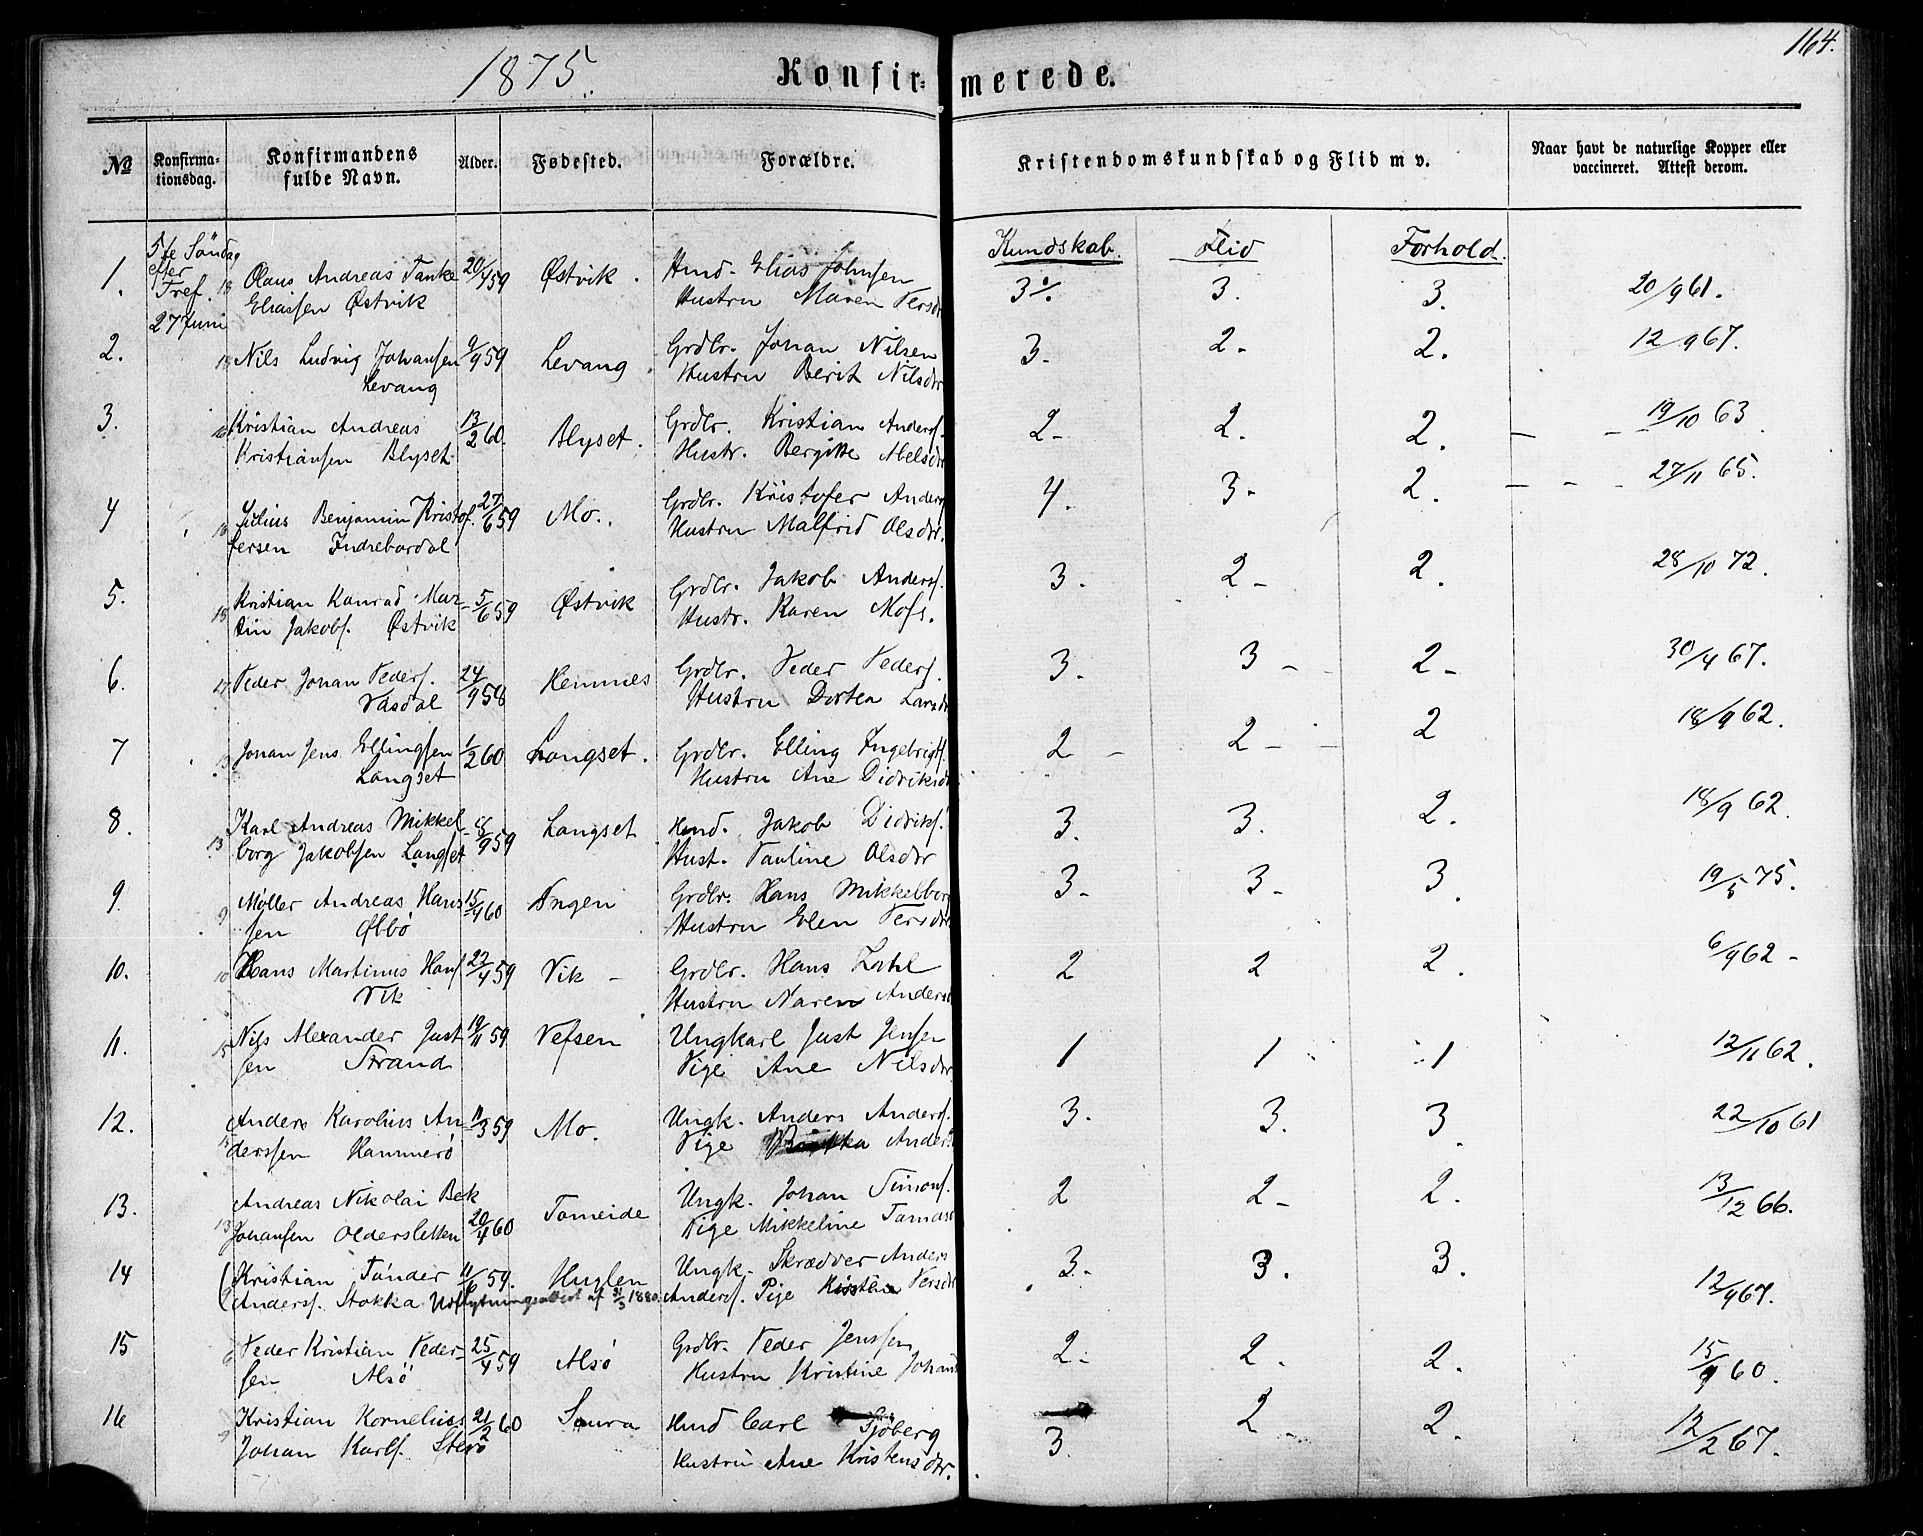 164.
1875.
Konfir- merede.
№
Konfirma-
tionsdag.
Konfirmandens
fulde Navn.
Alder.
Fødested.
Forældre.
Kristendomskundskab og Flid m v.
Naar havt de naturlige Kopper eller
vaccineret. Attest derom.
Kundskab. Flid Forhold.
5te Søndag
efter
Tref.
27 Juni
1. Olaus Andreas Tanke 20/4 59 Østvik. Hmd. Elias Johnsen 3 3. 3. 20/9 61.
Eliassen Østvik Hustru Maren Persdr
2. Nils Ludvig Johansen 9/9 59 Levang. Grdbr. Johan Nilsen 3. 2. 2. 12/9 67.
Levang Hustru Berit Nilsdr
3. Kristian Andreas 13/2 60. Blyset. Grdbr. Kristian Anders. 2 2. 2. 19/10 63
Kristiansen Blyset Hustr. Bergitte Abelsdr
4 Julius Benjamin Kristof. 27/6 59 Mo. Grdbr. Kristofer Anders 4. 3. 2. 27/11 65.
fersen Indrebardal Hustru Malfrid Olsdr.
5. Kristian Konrad Mar 5/6 59 Østvik Grdbr. Jakob Anders. 3. 2 2. 28/10 72.
tin Jakobs. Østvik Hustr. Karen Mos.
6. Peder Johan Peders. 24/9 58 Hemnes Grdbr. Peder Peders. 3. 3 2 30/4 67.
Vasdal Hustru Dortea Larsdr
7 Johan Jens Ellingsen 1/2 60 Langset. Grdbr. Elling Ingebrigts. 2 2 2 18/9 62.
Langset Hustru Ane Didriksdr
8. Karl Andreas Mikkel 8/9 59 Langset Hmd. Jakob Didriks. 3. 3. 2. 18/9 62.
borg Jakobsen Langset Hust. Pauline Olsdr
9. Møller Andreas Hans 15/4 60 Ingen Grdbr. Hans Mikkelborg 3. 3. 3. 19/5 75.
sen Ølbø Hustru Elen Persdr
10. Hans Martinus Hans 22/4 59 Vik Grdbr. Hans Zahl 2 2 2. 6/9 62
Vik Hustru Maren Andersd
11. Nils Alexander Just 19/11 59 Vefsen Ungkarl Just Jensen 1 1 1 12/11 62.
sen Strand Pige Ane Nilsdr.
12. Anders Karolius An 11/3 59 Mo. Ungk. Anders Anders. 3. 3. 3. 22/10 61
derssen Hammerö Pige Anders
13. Andreas Nikolai Bek 20/4 60 Tomeide Ungk. Johan Simons. 2 2 2. 13/12 66.
Johansen Oldersletten Pige Mikkeline Tomasd
14 Kristian Tønder 11/6 59. Huglen Ungk. Skrædder Anders 3. 3. 3. 12/9 67.
Anders. Stokka Udflytningsattest af 31/3 1880 Anders. Pige Kirstine Persdr
15 Peder Kristian Peder 25/4 59 Alsö Grdbr. Peder Jenssen 2. 2. 2. 15/9 60.
sen Alsö Hustru Kristine Johans
16 Kristian Kornelius 21/2 60 Saura Hmd Carl Sjöberg 3. 2 2. 12/2 67.
Johan Karls. Sterö Hustru Ane Kristensdr.